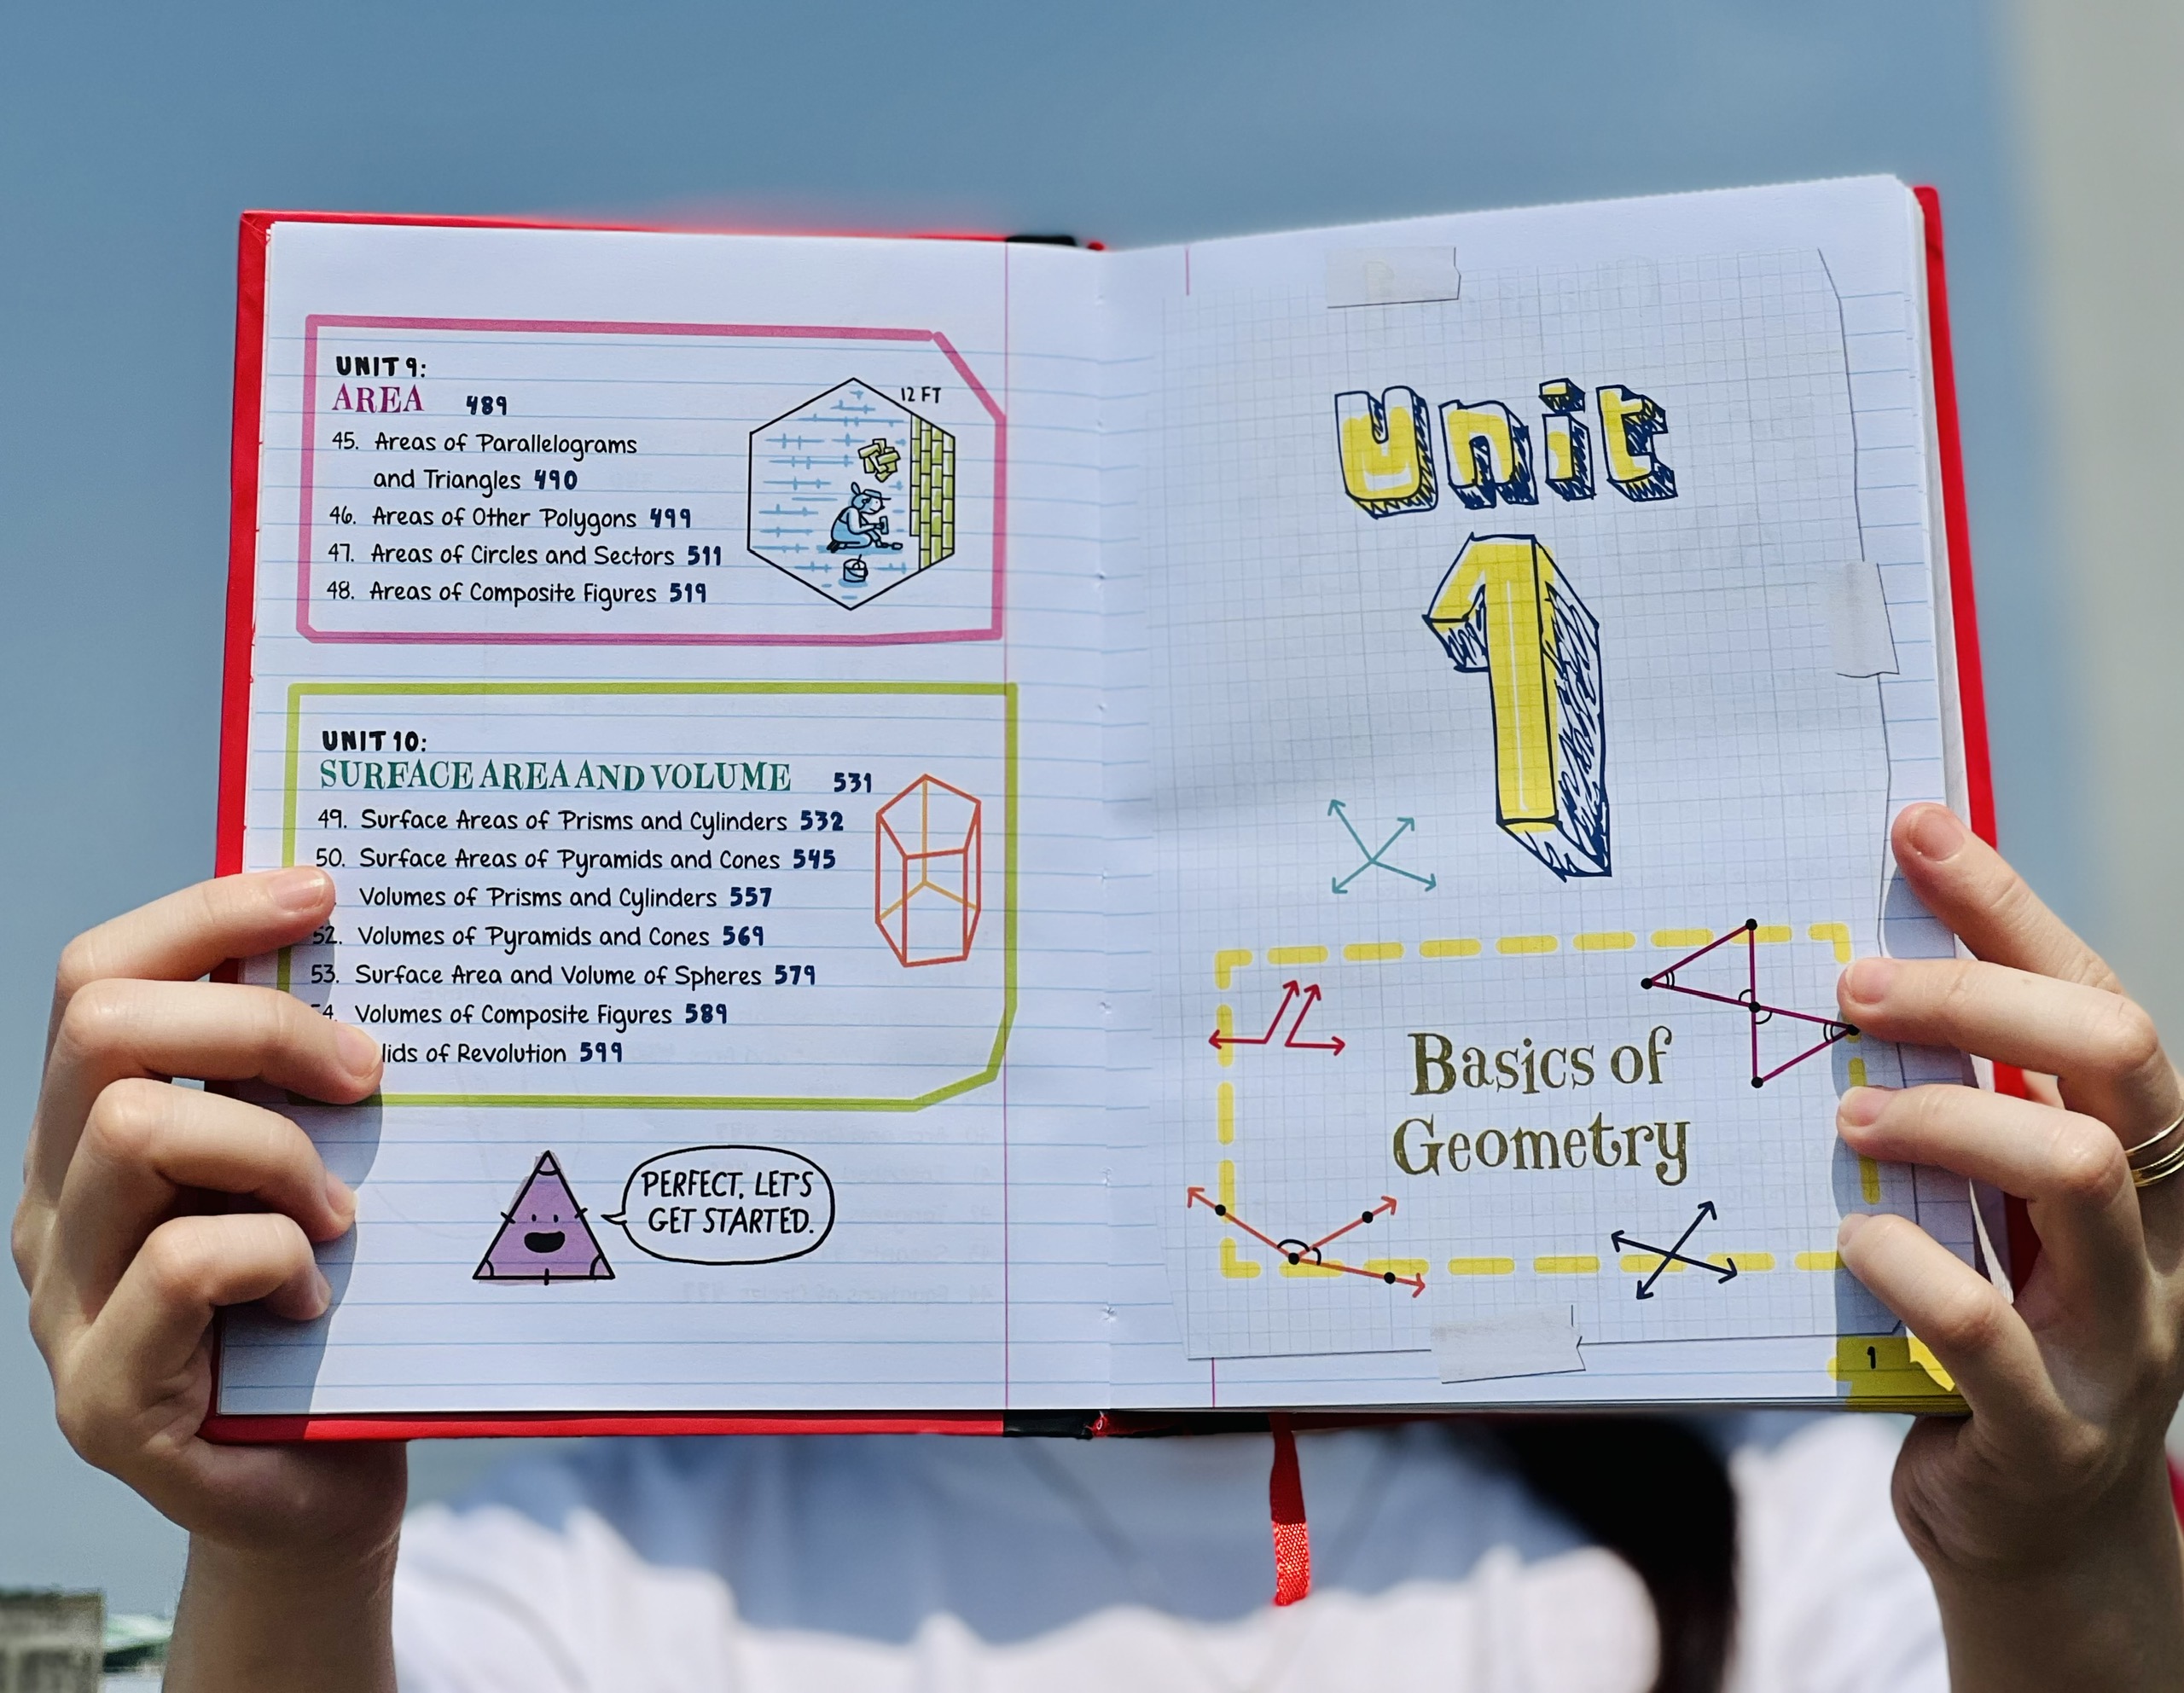 UNIT 9:
AREA 489
45. Areas of Parallelograms
and Triangles 490
46. Areas of Other Polygons 499
47. Areas of Circles and Sectors 511
48. Areas of Composite Figures 519
12 FT
UNIT 10:
SURFACE AREA AND VOLUME 531
49. Surface Areas of Prisms and Cylinders 532
50. Surface Areas of Pyramids and Cones 545
Volumes of Prisms and Cylinders 557
52. Volumes of Pyramids and Cones 569
53. Surface Area and Volume of Spheres 579
4. Volumes of Composite Figures 589
lids of Revolution 599
PERFECT, LET'S
GET STARTED.
Unit
1
Basics of
Geometry
1